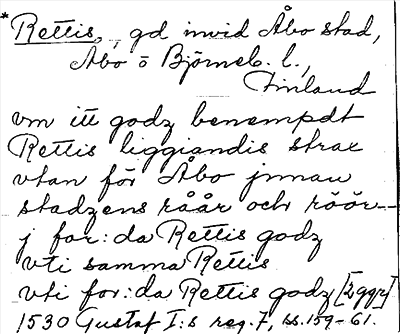 * Rettis, gd invid Åbo stad,
Åbo o Björneb. l.,
Finland
vm itt godz benempdt
Rettis liggiandis strax
vtan för Åbo jnnan
stadzens råår och röör --
j for:da Rettis godz
vti samma Rettis
vti for:da Rettis godz [2 ggr]
1530 Gustaf I:s reg. 7, ss. 159-61.